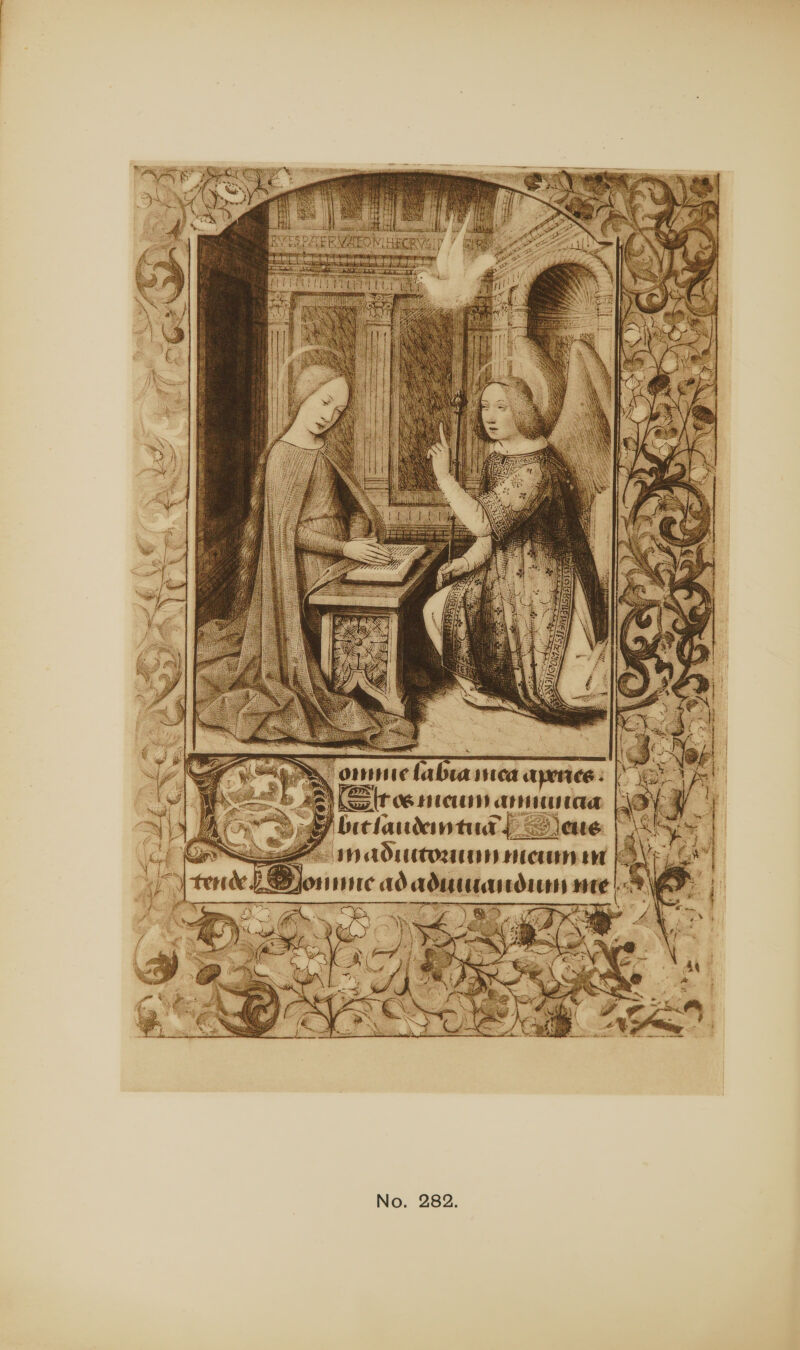 Domine labia mea aperies.
Et os meum annuncia
bit laudem tuā Deus
in adiutorium meum in
tende Domine ad adiuuandum me
No. 282.